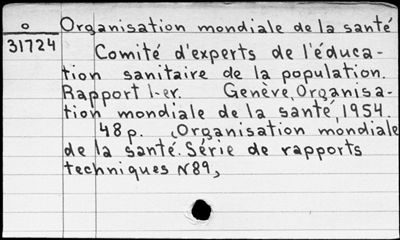 o Organisation mondiale de la santé
31724 Comité d'experts de l'éduca-
tion sanitaire de la population.
Rapport 1-er. Genève, Organisa-
tion mondiale de la santé, 1954.
48 p. (Organisation mondiale
de la santé. Série de rapports
techniques N89)